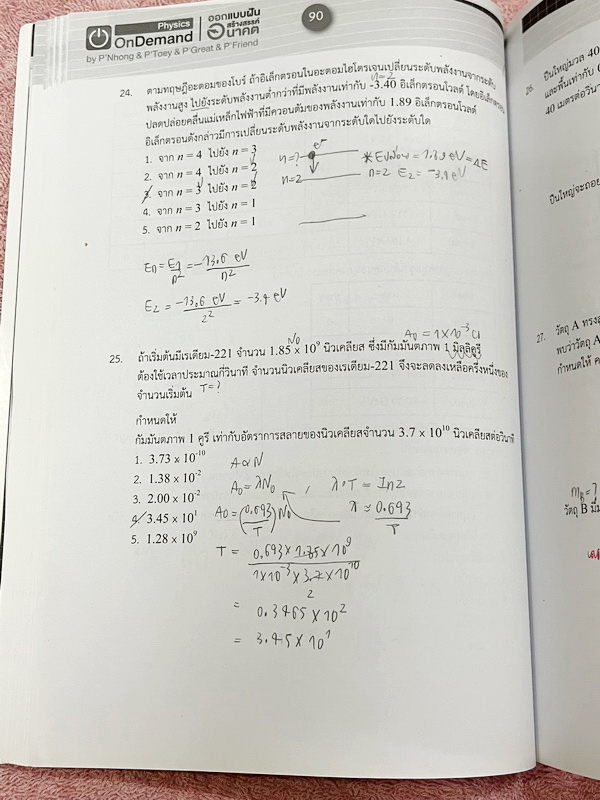 Physics
OnDemand
by P'Nhong & P'Toey & P'Great & P'Friend
ออกแบบฝัน
สร้างสรรค์
อนาคต
90
24. ตามทฤษฎีอะตอมของโบร์ ถ้าอิเล็กตรอนในอะตอมไฮโดรเจนเปลี่ยนระดับพลังงานจากระดับ
n=2
พลังงานสูง ไปยังระดับพลังงานต่ำกว่าที่มีพลังงานเท่ากับ -3.40 อิเล็กตรอนโวลต์ โดยอิเล็กตรอน
ปลดปล่อยคลื่นแม่เหล็กไฟฟ้าที่มีควอนตัมของพลังงานเท่ากับ 1.89 อิเล็กตรอนโวลต์
อิเล็กตรอนดังกล่าวมีการเปลี่ยนระดับพลังงานจากระดับใดไปยังระดับใด
1. จาก n = 4 ไปยัง n = 3
2. จาก n = 4 ไปยัง n = 2
3. จาก n = 3 ไปยัง n = 2
4. จาก n = 3 ไปยัง n = 1
5. จาก n = 2 ไปยัง n = 1
n=?
n=2
n=2 E2 = -3.4 eV
En = E1/n² = -13.6 eV/n²
E2 = -13.6 eV/2² = -3.4 eV
N0
A0 = 1×10⁻³ Ci
25. ถ้าเริ่มต้นมีเรเดียม-221 จำนวน 1.85 x 10⁹ นิวเคลียส ซึ่งมีกัมมันตภาพ 1 มิลลิคูรี
ต้องใช้เวลาประมาณกี่วินาที จำนวนนิวเคลียสของเรเดียม-221 จึงจะลดลงเหลือครึ่งหนึ่งของ
จำนวนเริ่มต้น T=?
กำหนดให้
กัมมันตภาพ 1 คูรี เท่ากับอัตราการสลายของนิวเคลียสจำนวน 3.7 x 10¹⁰ นิวเคลียสต่อวินาที
1. 3.73 x 10⁻¹⁰
2. 1.38 x 10⁻²
3. 2.00 x 10⁻²
4. 3.45 x 10¹
5. 1.28 x 10⁹
A∝N
A0 = λN0 , λ·T = ln2
A0 = (0.693/T)N0 λ = 0.693/T
T = 0.693 × 1.85 × 10⁹ / 1×10⁻³ × 3.7 × 10¹⁰
2
= 0.3465 × 10²
= 3.45 × 10¹
26. ปืนใหญ่มวล 40
40 เมตรต่อวินา
ปืนใหญ่จะถอย
27. วัตถุ A ทรงก
พบว่าวัตถุ A
กำหนดให้ ค
วัตถุ B มี